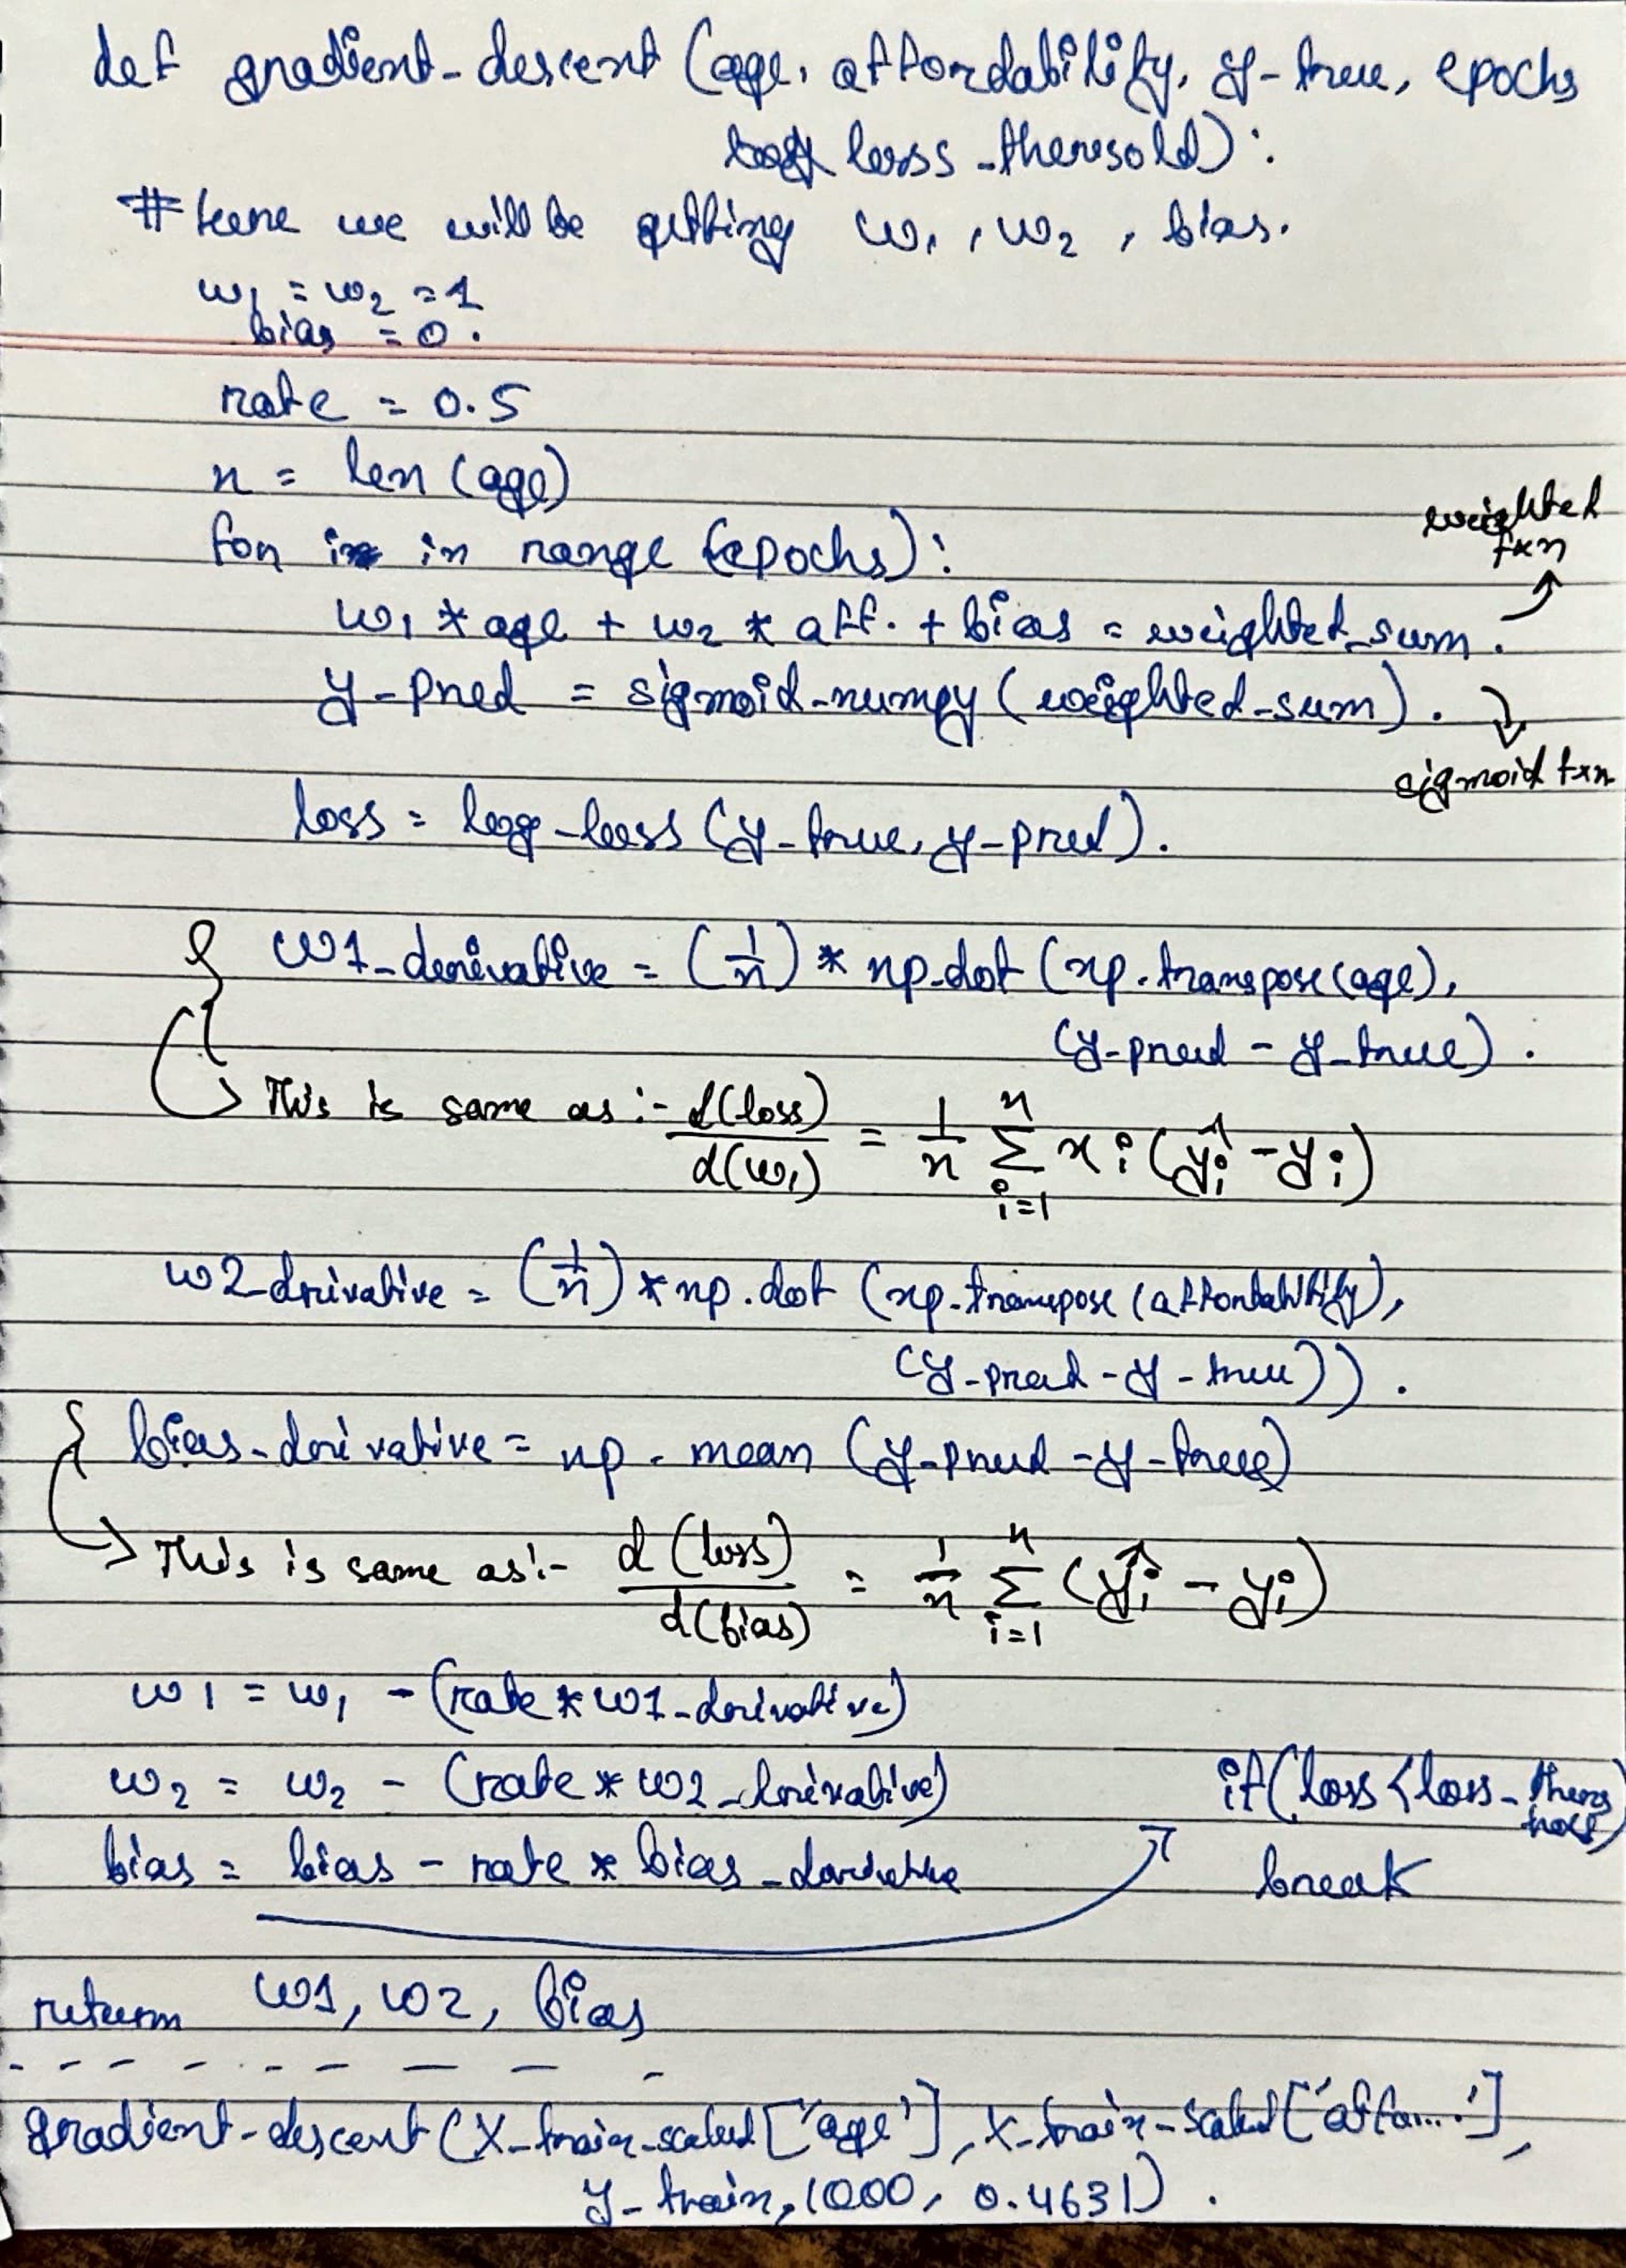 def gradient-descent (age, affordability, y-true, epochs
loss-thersold):
# here we will be getting w₁, w₂, bias.
w₁ = w₂ = 1
bias = 0.
rate = 0.5
n = len (age)
weighted
fxn
for i in range (epochs):
w₁ * age + w₂ * aff. + bias = weighted_sum.
y-pred = sigmoid-numpy (weighted-sum).
sigmoid fxn
loss = log-loss (y-true, y-pred).
w1-derivative = (1/n) * np.dot (np.transpose(age),
(y-pred - y-true).
This is same as :- d(loss)/d(w₁) = 1/n Σ_{i=1}^{n} xi (ŷi - yi)
w2-drivative = (1/n) * np.dot (np.transpose (affordability),
(y-pred - y-true)).
bias-derivative = np.mean (y-pred - y-true)
This is same as:- d(loss)/d(bias) = 1/n Σ_{i=1}^{n} (ŷi - yi)
w1 = w₁ - (rate * w1-derivative)
w₂ = w₂ - (rate * w2-derivative)
if (loss < loss-
bias = bias - rate * bias-derivative
break
return w1, w2, bias
gradient-descent (X-train-scaled ['age'], X-train-scaled ['affo....'],
y-train, 1000, 0.4631).